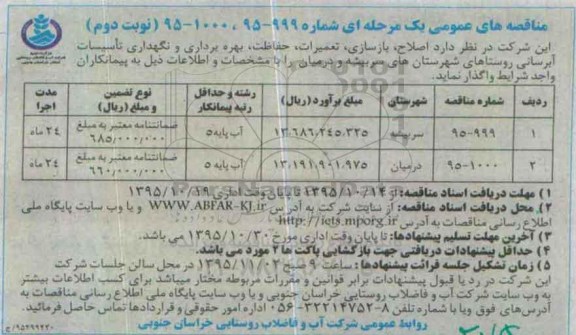 مناقصه های عمومی یک مرحله ای شماره ۹۹۹-۹۵ ، ۱۰۰۰-۹۵ (نوبت دوم)
این شرکت در نظر دارد اصلاح، بازسازی، تعمیرات، حفاظت، بهره برداری و نگهداری تأسیسات
آبرسانی روستاهای شهرستان های سربیشه و درمیان را با مشخصات و اطلاعات ذیل به پیمانکاران
واجد شرایط واگذار نماید.
ردیف شماره مناقصه شهرستان مبلغ برآورد (ریال) رشته و حداقل رتبه پیمانکار نوع تضمین و مبلغ (ریال) مدت اجرا
۱ ۹۹۹-۹۵ سربیشه ۱۳،۶۸۶،۲۴۵،۳۲۵ آب پایه ۵ ضمانتنامه معتبر به مبلغ ۶۸۵/۰۰۰/۰۰۰ ۲۴ ماه
۲ ۱۰۰۰-۹۵ درمیان ۱۳،۱۹۱،۹۰۱،۹۷۵ آب پایه ۵ ضمانتنامه معتبر به مبلغ ۶۶۰/۰۰۰/۰۰۰ ۲۴ ماه
۱) مهلت دریافت اسناد مناقصه: از ۱۳۹۵/۱۰/۱۴ تا پایان وقت اداری ۱۳۹۵/۱۰/۱۹
۲) محل دریافت اسناد مناقصه: از سایت شرکت به آدرس WWW.ABFAR-KJ.ir و یا وب سایت پایگاه ملی
اطلاع رسانی مناقصات به آدرس http://iets.mporg.ir
۳) آخرین مهلت تسلیم پیشنهادها: تا پایان وقت اداری مورخ ۱۳۹۵/۱۰/۳۰ می باشد.
۴) حداقل پیشنهادات دریافتی جهت بازگشایی پاکت ها ۲ مورد می باشد.
۵) زمان تشکیل جلسه قرائت پیشنهادها: ساعت ۹ صبح ۱۳۹۵/۱۱/۰۲ در محل سالن جلسات شرکت
این شرکت در رد یا قبول پیشنهادات برابر قوانین و مقررات مربوطه مختار میباشد برای کسب اطلاعات بیشتر
به وب سایت شرکت آب و فاضلاب روستایی خراسان جنوبی و یا وب سایت پایگاه ملی اطلاع رسانی مناقصات به
آدرس های فوق ویا با شماره تلفن ۸-۳۲۲۱۴۷۵۲-۰۵۶ اداره امور حقوقی و قراردادها تماس حاصل فرمائید.
روابط عمومی شرکت آب و فاضلاب روستایی خراسان جنوبی